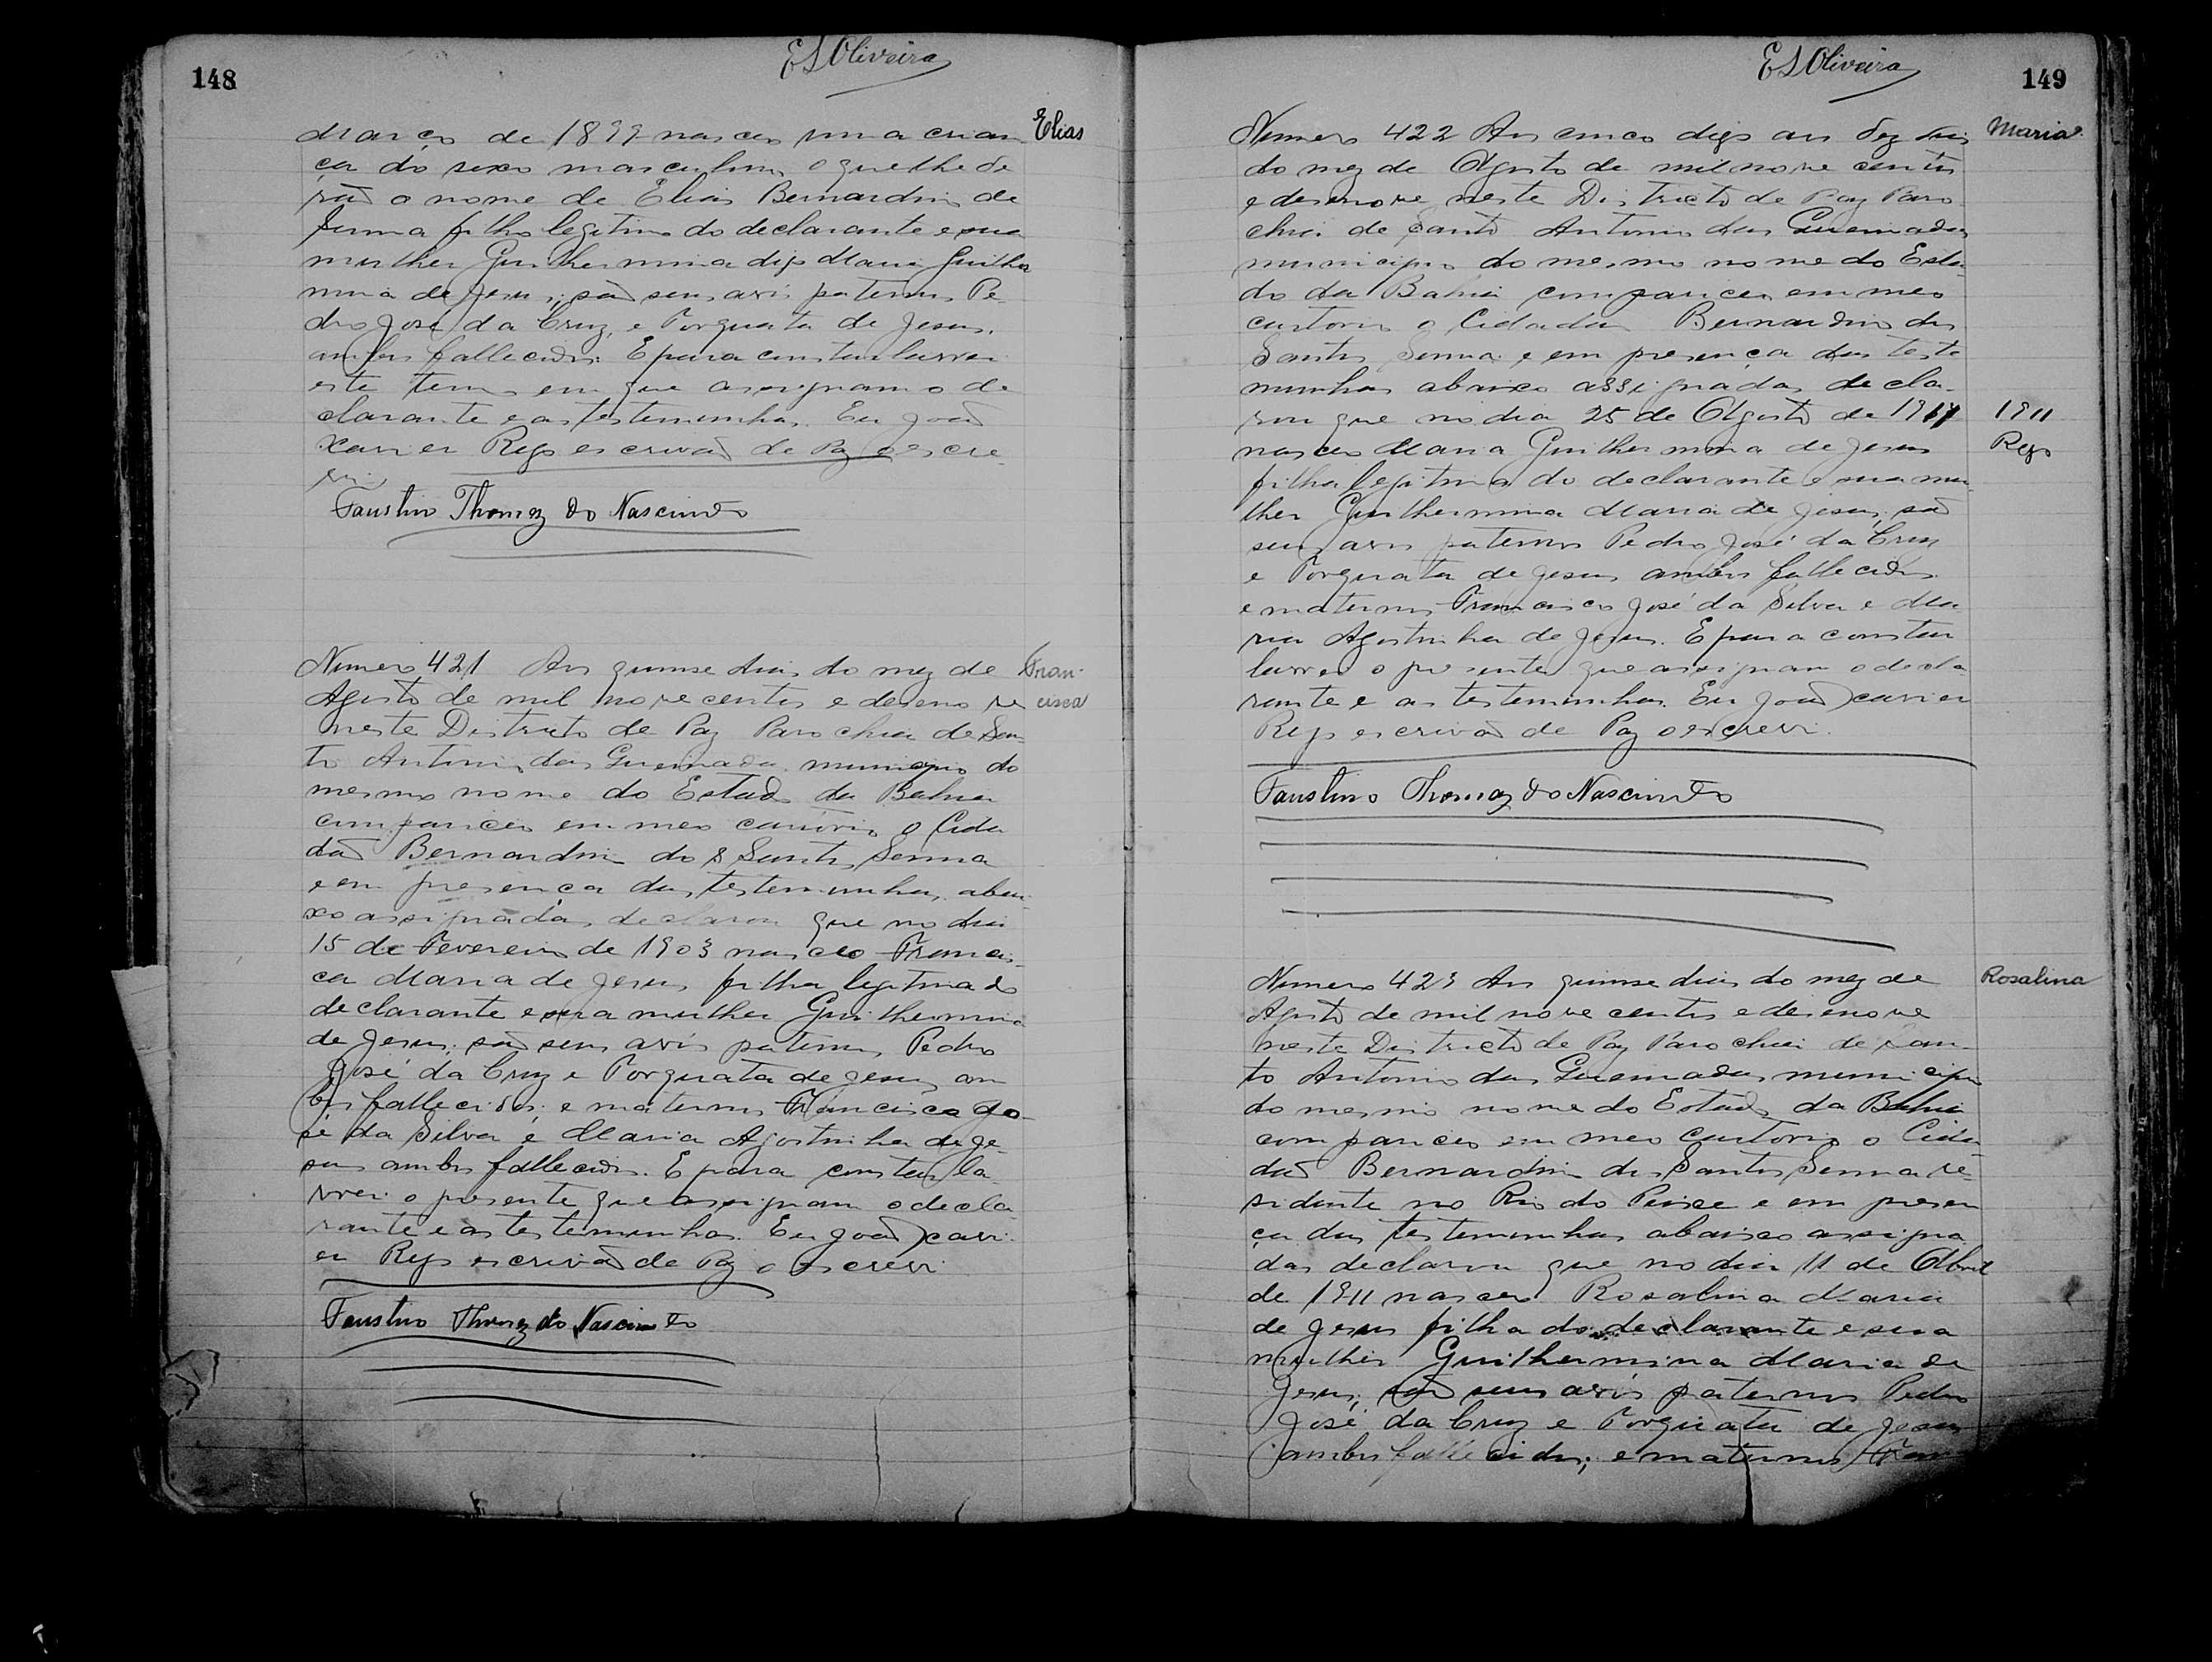 148
ESOliveira
Março de 1899 nasceo uma crian
ça do sexo masculino o que lhe de
rão o nome de Elias Bernardino de
Senna filho legitimo do declarante e sua
mulher Guilhermina digo Maria Guilher
mina de Jesus; são seus avós paternos Pe
dro José da Cruz, e Torquata de Jesus,
ambos fallecidos. E para constar lavrei
este termo em que assignam o de
clarante e as testemunhas. Eu João
Xavier Rego escrivão de Paz o escre
vi
Elias
Faustino Thomaz do Nascimto
Numero 421 Aos quinse dias do mez de
Agosto de mil novecentos e desenove
neste Districto de Paz Parochia de San
to Antonio das Queimadas municipio do
mesmo nome do Estado da Bahia
compareceo em meo cartorio o Cida
dão Bernardino dos Santos Senna
e em presença das testemunhas abai
xo assignadas declarou que no dia
15 de Fevereiro de 1903 nasceo Francis
ca Maria de Jesus filha legitima do
declarante e sua mulher Guilhermina
de Jesus; são seus avós paternos Pedro
José da Cruz e Torquata de Jesus am
bos fallecidos; e maternos Francisco Jo
sé da Silva e Maria Agostinha de Je
sus ambos fallecidos. E para constar la
vrei o presente que assignam o decla
rante e as testemunhas. Eu João Xavi
er Rego escrivão de Paz o escrevi
Fran-
cisca
Faustino Thomaz do Nascimto
ESOliveira
149
Numero 422 Aos cinco digo aos dez dias
do mez de Agosto de mil nove centos
e desenove neste Districto de Paz Paro
chia de Santo Antonio das Queimadas
municipio do mesmo nome do Esta
do da Bahia compareceo em meo
cartorio o Cidadão Bernardino dos
Santos Senna e em presença das teste
munhas abaixo assignadas decla-
rou que no dia 25 de Agosto de 1911
nasceo Maria Guilhermina de Jesus
filha legitima do declarante e sua mu
lher Guilhermina Maria de Jesus; são
seus avós paternos Pedro José da Cruz
e Torquata de Jesus ambos fallecidos
e maternos Francisco José da Silva e Ma
ria Agostinha de Jesus. E para constar
lavrei o presente que assignam o decla
rante e as testemunhas. Eu João Xavier
Rego escrivão de Paz o escrevi.
Maria
1911
Rego
Faustino Thomaz do Nascimto
Numero 423 Aos quinse dias do mez de
Agosto de mil nove centos e desenove
neste Districto de Paz Parochia de San
to Antonio das Queimadas municipio
do mesmo nome do Estado da Bahia
compareceo em meo Cartorio o Cida
dão Bernardino dos Santos Senna re-
sidente no Rio do Peixe e em presen
ça das testemunhas abaixo assigna
das declarou que no dia 11 de Abril
de 1911 nasceo Rosalina Maria
de Jesus filha do declarante e sua
mulher Guilhermina Maria de
Jesus; são seus avós paternos Pedro
José da Cruz e Torquata de Jesus
ambos fallecidos; e maternos Fran
Rosalina